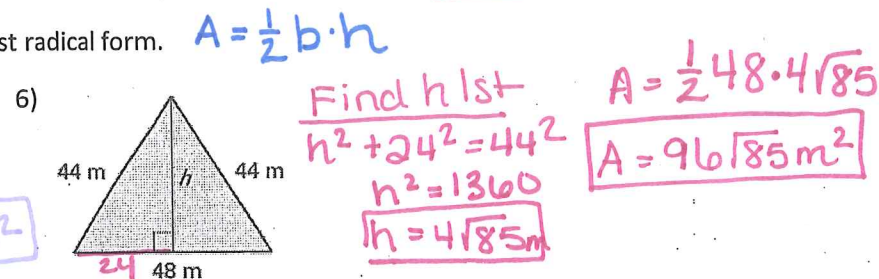 st radical form.
A = ½ b·h
6)
44 m
h
44 m
24
48 m
Find h 1st
h² + 24² = 44²
h² = 1360
h = 4√85 m
A = ½ 48·4√85
A = 96√85 m²
2